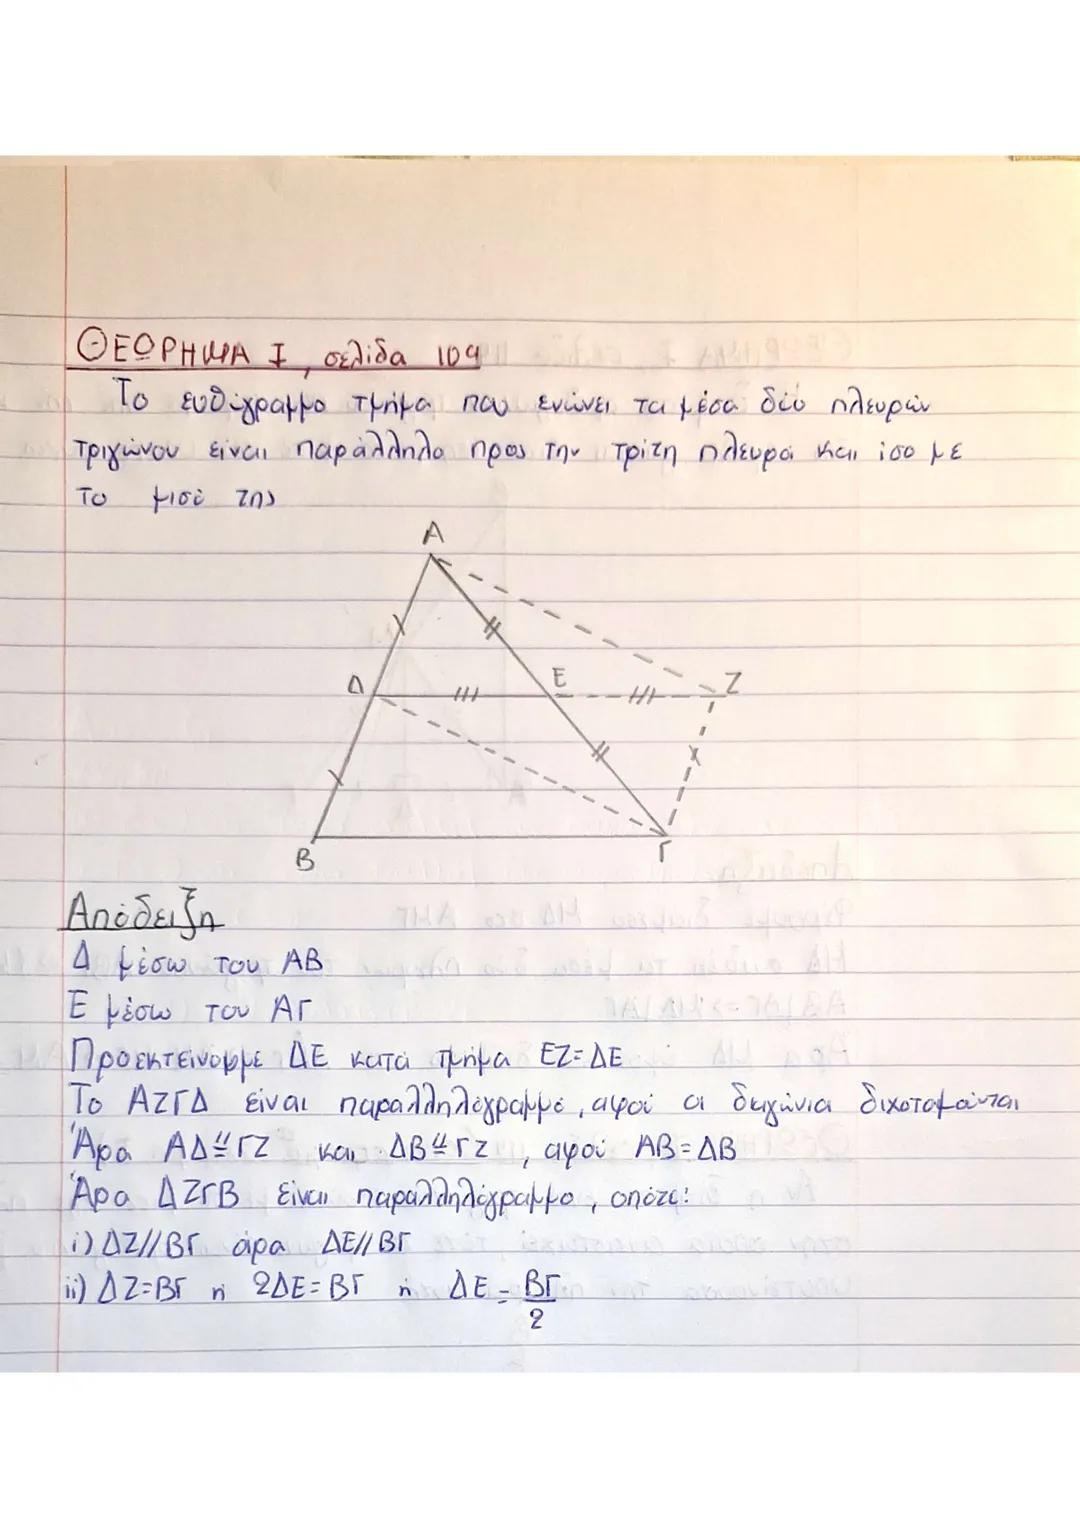 ΘΕΩΡΗΜΑ Ι, σελίδα 104
Το ευθύγραμμο τμήμα που ενώνει τα μέσα δύο πλευρών
τριγώνου είναι παράλληλο προς την τρίτη πλευρά και ίσο με
το μισό της
Α
Δ
Ε
Ζ
Β
Γ
Απόδειξη
Δ μέσω του ΑΒ
Ε μέσω του ΑΓ
Προεκτείνουμε ΔΕ κατά τμήμα ΕΖ=ΔΕ
Το ΑΖΓΔ είναι παραλληλόγραμμο, αφού οι διαγώνια διχοτομούνται
Άρα ΑΔ//=ΓΖ και ΔΒ//=ΓΖ, αφού ΑΒ=ΔΒ
Άρα ΔΖΓΒ είναι παραλληλόγραμμο, οπότε:
i) ΔΖ//ΒΓ άρα ΔΕ//ΒΓ
ii) ΔΖ=ΒΓ ή 2ΔΕ=ΒΓ ή ΔΕ=ΒΓ/2